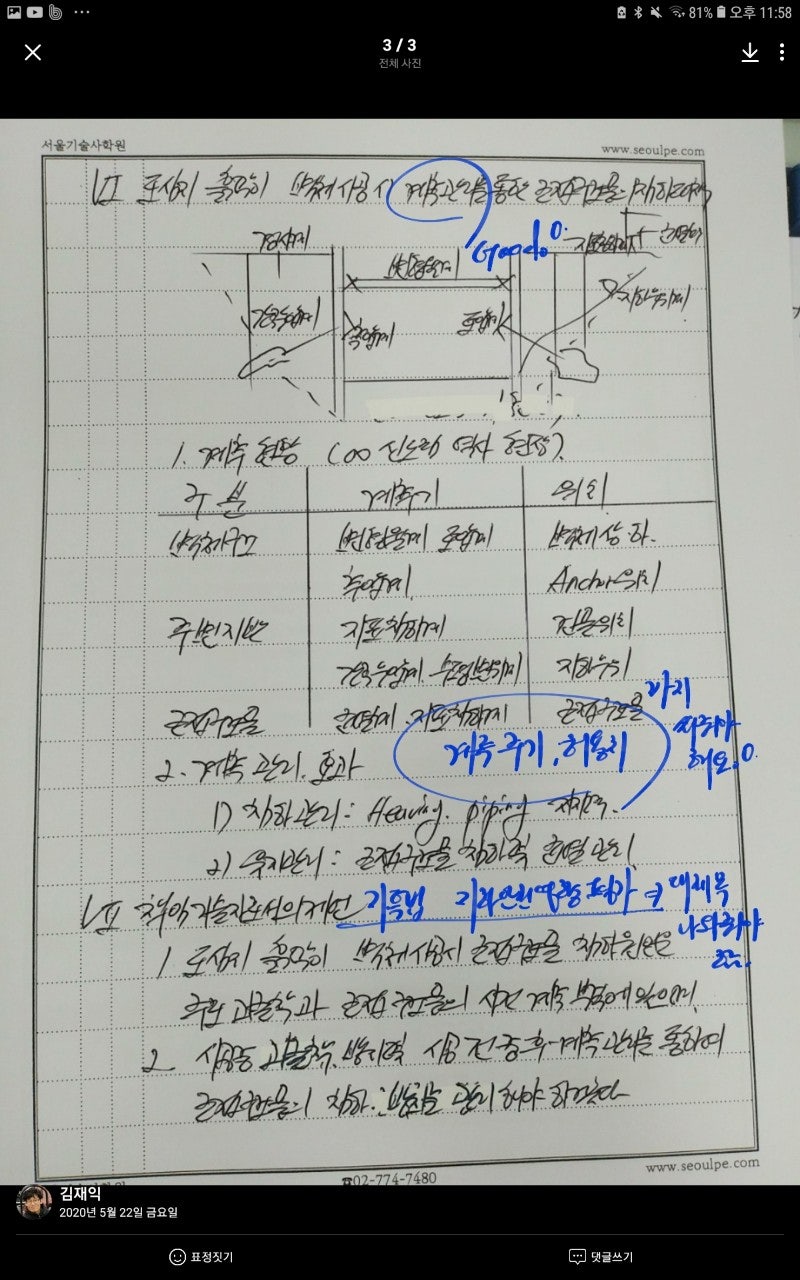 81% 오후 11:58
3 / 3
전체 사진
서울기술사학원 www.seoulpe.com
VI 도심지 흙막이 벽체 시공시 계측관리를 통한 근접구조물 침하대책
Good.
경사계 변형율계 지표침하계 균열계
간극수압계 축압계 토압계 지하수위계
1. 계측 현황 (○○ 신노량 역사 현장)
구 분 계측기 위치
벽체구조 변형율계 토압계 벽체 상·하.
축압계 Anchor위치
주변지반 지표침하계 건물위치
간극수압계. 수평변위계 지하수위
근접구조물 균열계. 지표침하계 근접구조물
계측 주기, 허용치
까지
되어야
해요.
2. 계측 관리 효과
1) 침하관리: Heaving. piping
2) 유지관리: 근접구조물 침하 및 균열 관리
VII 취약기술지도서의 제언
지하안전영향평가 대제목
나와줘야
1. 도심지 흙막이 벽체시공시 근접구조물 침하원인은
주로 과굴착과 근접구조물의 사전 계측 부족에 있으며,
2. 시공중 과굴착 방지 및 시공 전·중·후 계측관리를 통하여
근접구조물의 침하. 변위를 관리해야 하겠다
☎02-774-7480 www.seoulpe.com
김재익
2020년 5월 22일 금요일
표정짓기 댓글쓰기